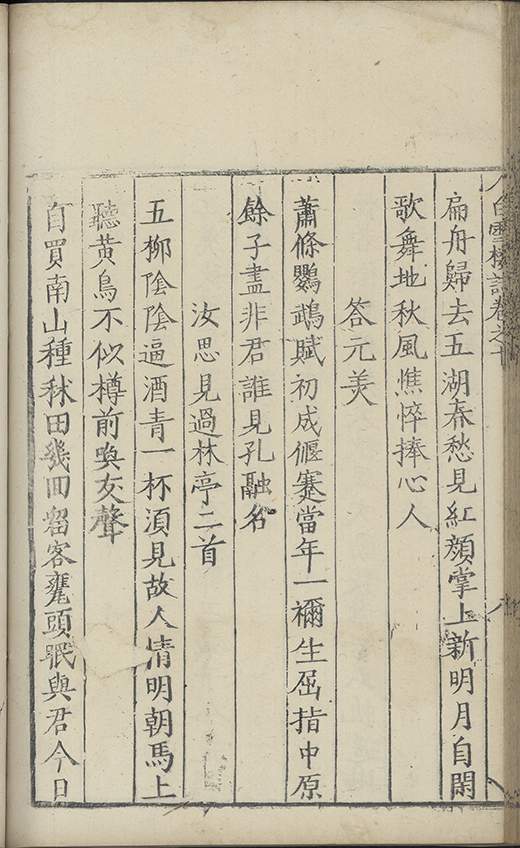 白雪樓詩卷之十
扁舟歸去五湖春愁見紅顏掌上新明月自閑
歌舞地秋風憔悴捧心人
答元美
蕭條鸚鵡賦初成偃蹇當年一禰生屈指中原
餘子盡非君誰見孔融名
汝思見過林亭二首
五柳陰陰逼酒青一杯須見故人情明朝馬上
聽黃鳥不似樽前喚友聲
自買南山種秫田幾囬留客甕頭眠與君今日